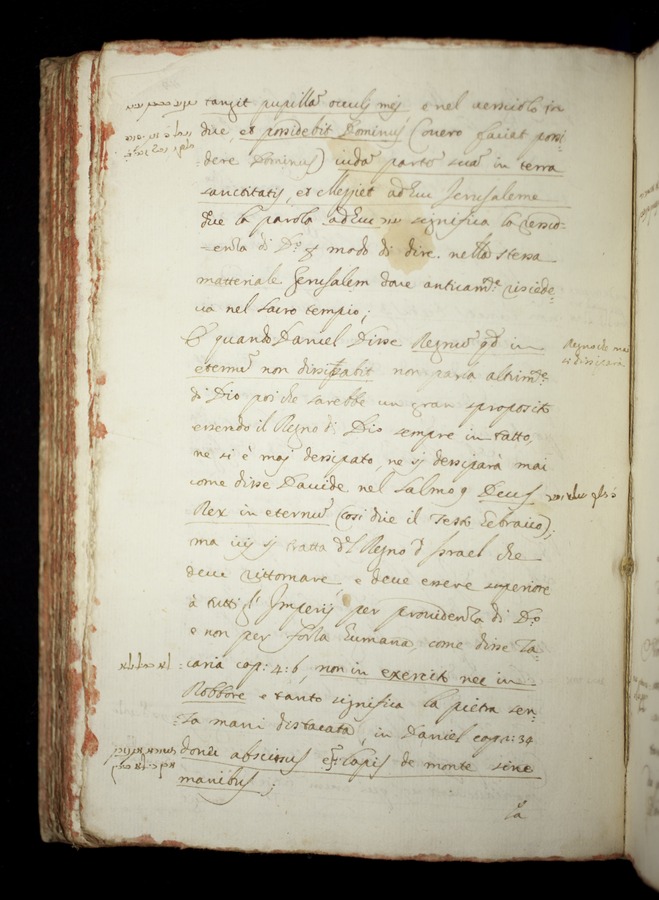 tangit pupillã oculj mej, e nel versiolo in
dice, et possidebit Dominus, (overo faciet possi-
dere Dominus) iudã partẽ suã in terra
sanctitatis, et adhuc Jerusaleme
due la parola adhuc significa la resid-
enza di D.o modo di dire. nella stessa
materiale Jerusalem dove anticam.te risiede-
va nel sacro tempio;
E quando Daniel disse Regnũ qd in
eternũ non dissipabit non parla altrim.te
di Dio poi che sarebbe un gran sproposito
essendo il Regno di Dio sempre in tatto,
ne si è maj desipato, ne si dessiparà mai
come disse Davide nel Salmo 9 Deus
Rex in eternũ (cosi dice il Testo Hebraico);
ma si tratta d'l Regno d'Israel che
deve rittornare, e deve essere superiore
à tutti gl'Imperij per providenza di D.o
e non per forza humana, come disse Za-
-caria cap: 4: 6, non in exercito nec in
Robbore e tanto significa la pietra sen-
-za mani distacata, in Daniel cap: 2: 34
donec abscissus est lapis de monte sine
manibus;
la
Regno che mai
si dissiparà